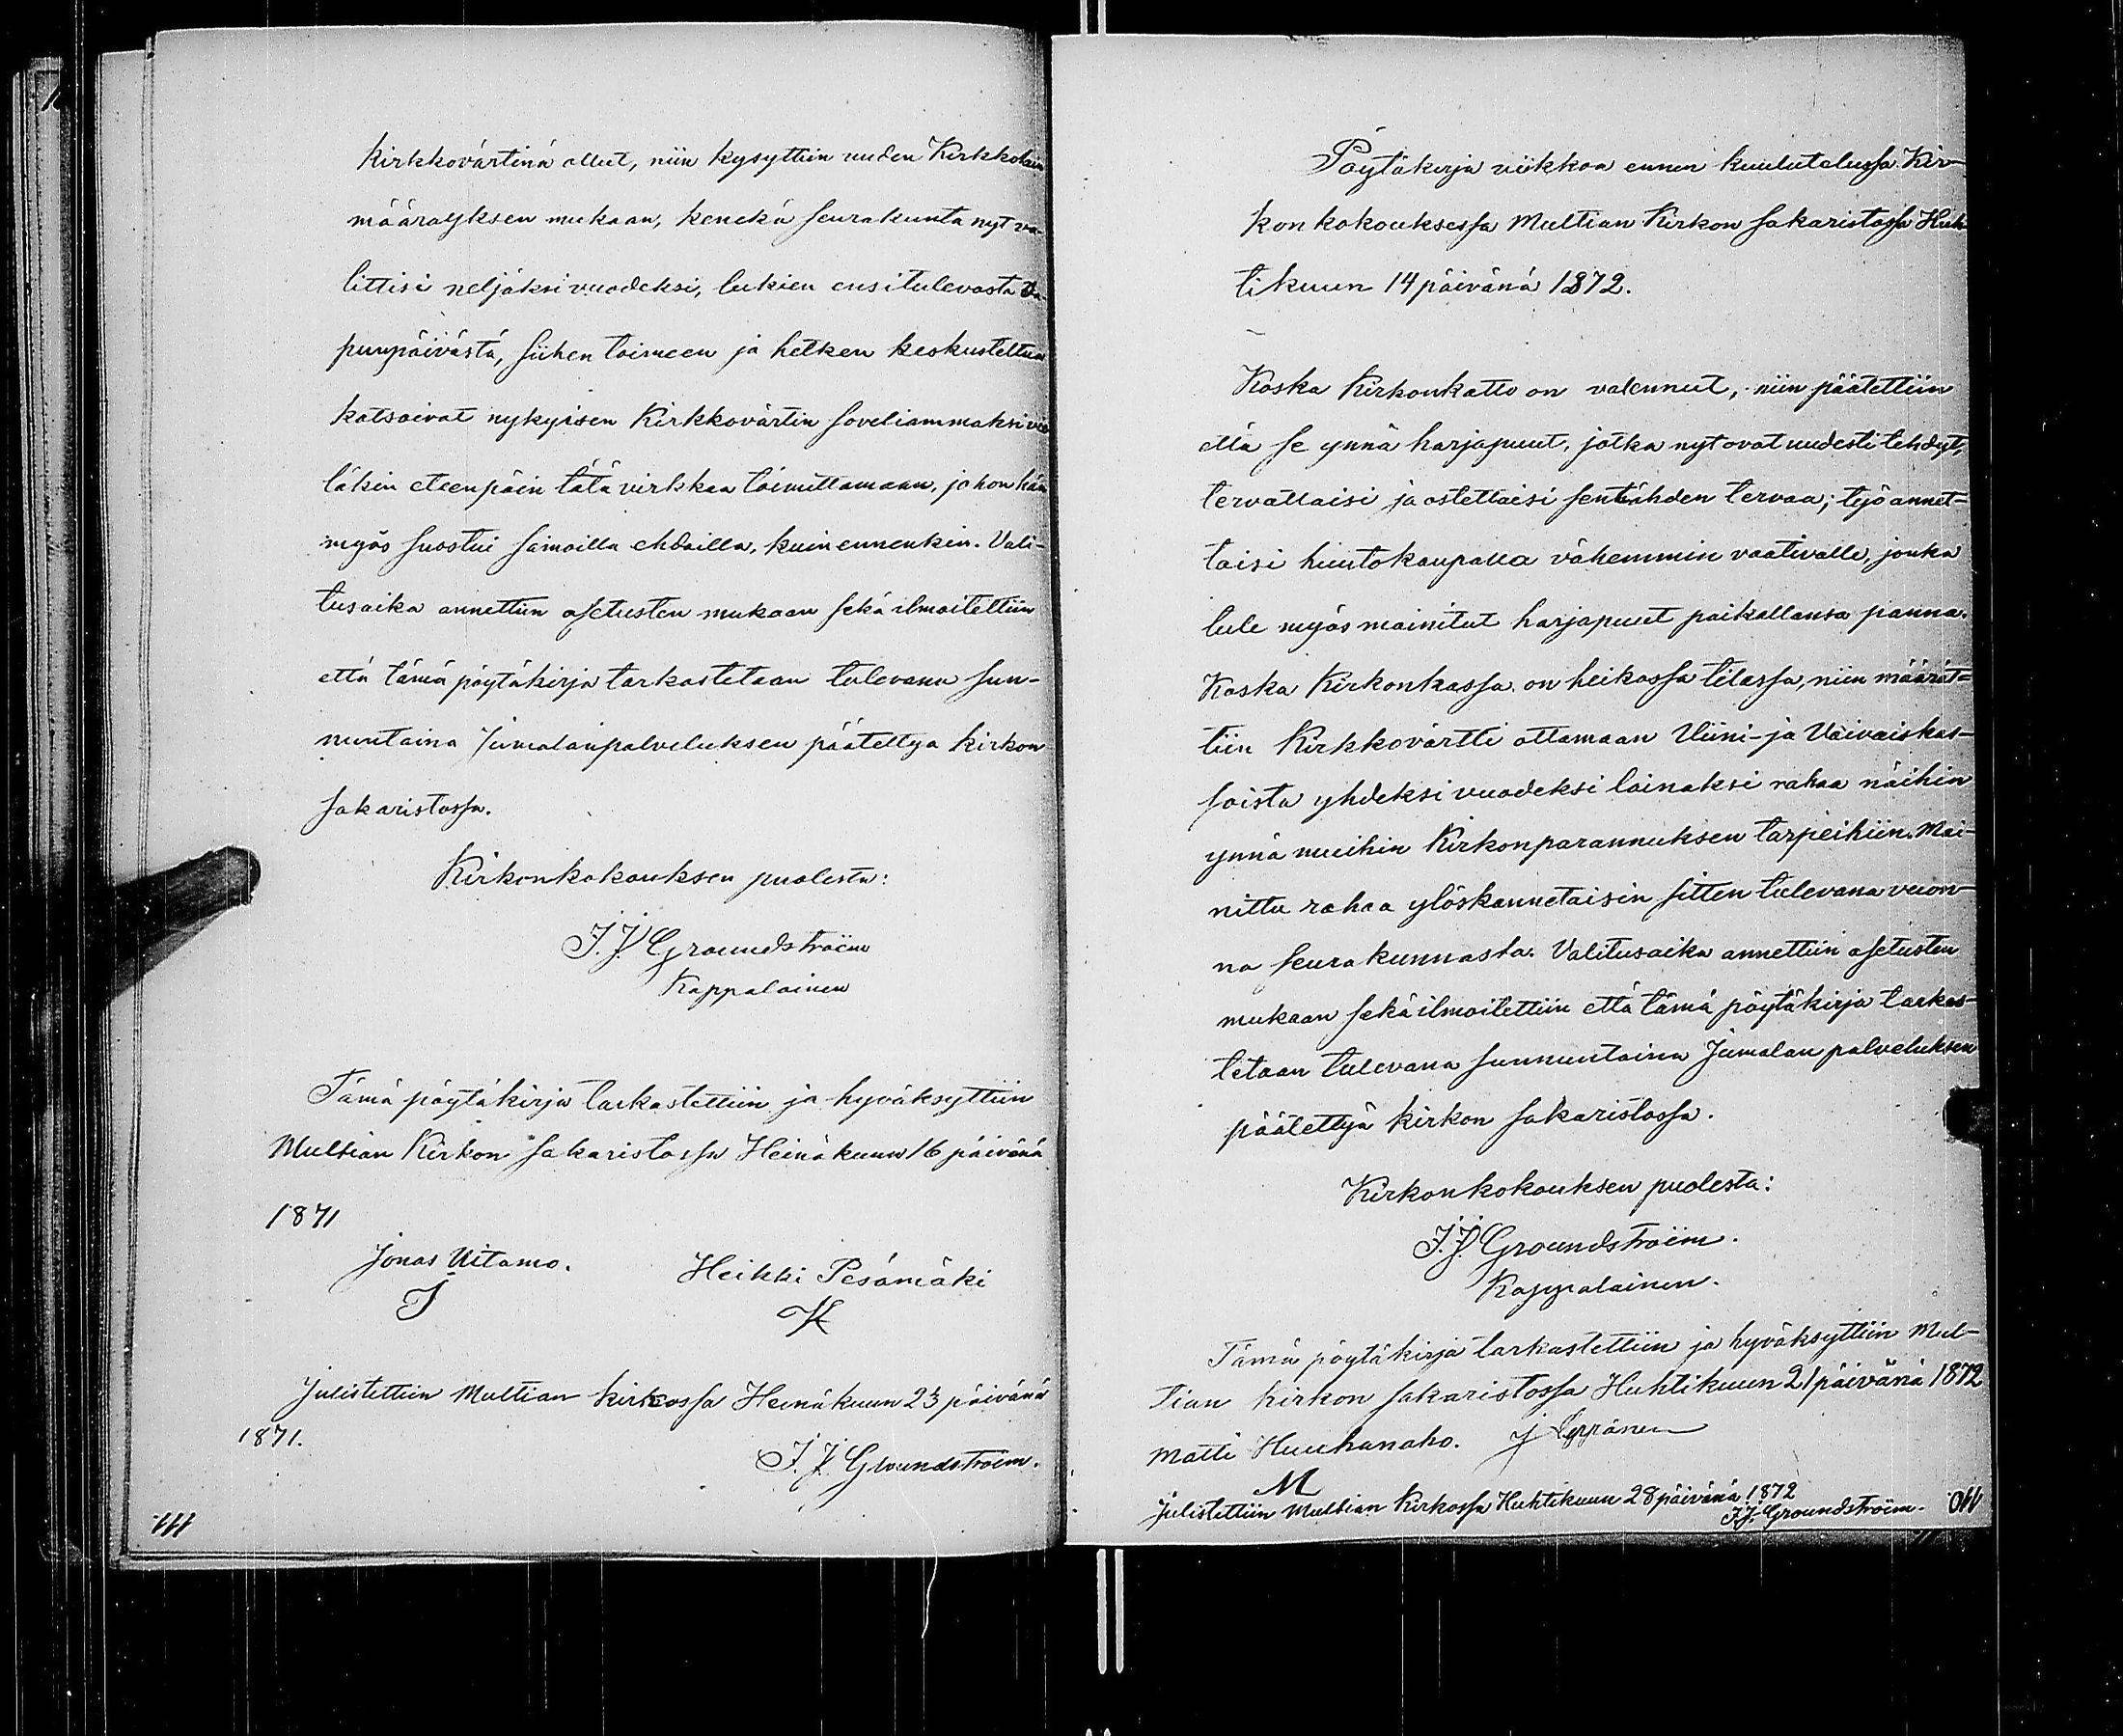 Kirkkovärtinä ollut, niin kysyttiin uuden Kirkkolain
määräyksen mukaan, kenekä seurakunta nyt va-
littisi neljäksi vuodeksi, lukien ensitulevasta Va-
punpäivästä, siihen toimeen ja hetken keskusteltua
katsoivat nykyisen Kirkkovärtin soveliammaksi vie
läkin eteenpäin tätä virkkaa toimittamaan, johon hän
myös suostui samoilla ehdoilla, kuin ennenkin. Vali-
tusaika annettiin asetusten mukaan sekä ilmoitettiin
että tämä pöytäkirja tarkastetaan tulevana sun-
nuntaina Jumalanpalveluksen päätettyä kirkon
sakaristossa.
Kirkonkokouksen puolesta:
J. J. Groundstroëm
Kappalainen
Tämä pöytäkirja tarkastettiin ja hyväksyttiin
Multian Kirkon sakaristossa Heinäkuun 16 päivänä
1871
Jonas Uitamo. Heikki Pesämäki
J H
Julistettiin Multian kirkossa Heinäkuun 23 päivänä
1871.
J. J. Groundstroëm.
111
Pöytäkirja viikkoa ennen kuulutetussa Kir-
kon kokouksessa Multian Kirkon sakaristossa Huh
tikuun 14 päivänä 1872.
Koska Kirkonkatto on valennut, niin päätettiin
että se ynnä harjapuut, jotka nyt ovat uudesti tehdyt,
tervattaisi ja ostettaisi sentähden tervaa; työ annet=
taisi huutokaupalla vähemmin vaativalle, jonka
tule myös mainitut harjapuut paikallansa panna.
Koska Kirkonkassa on heikossa tilassa, niin määrät=
tiin Kirkkovärtti ottamaan Viini- ja Vaivaiskas-
soista yhdeksi vuodeksi lainaksi rahaa näihin
ynnä muihin Kirkonparannuksen tarpeihiin. Mai-
nittu rahaa ylöskannetaisin sitten tulevana vuon-
na seurakunnasta. Valitusaika annettiin asetusten
mukaan sekä ilmoitettiin että tämä pöytäkirja tarkas-
tetaan tulevana sunnuntaina Jumalan palveluksen
päätettyä kirkon sakaristossa.
Kirkonkokouksen puolesta:
J. J. Groundstroëm.
Kappalainen.
Tämä pöytäkirja tarkastettiin ja hyväksyttiin Mul-
tian kirkon sakaristossa Huhtikuun 21 päivänä 1872
Matti Huuhanaho. J
M
Julistettiin Multian Kirkossa Huhtikuun 28 päivänä 1872
J. J. Groundstroëm.